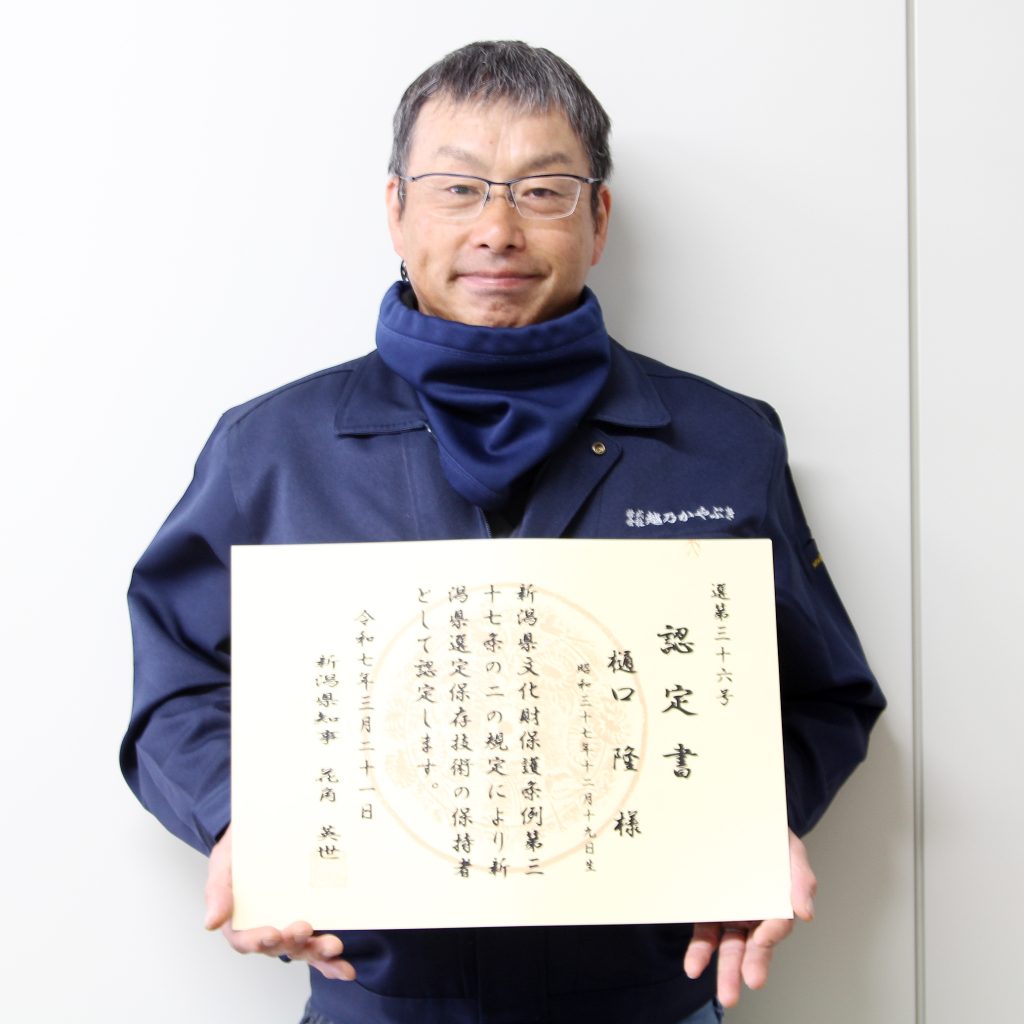 株式会社 越乃かやぶき
選第三十六号
認定書
樋口 隆 様
昭和三十七年十二月十九日生
新潟県文化財保護条例第三
十七条の二の規定により新
潟県選定保存技術の保持者
として認定します。
令和七年三月二十一日
新潟県知事 花角 英世